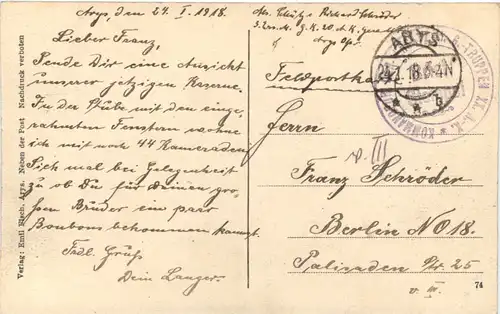 Arys, den 24. I. 1918.
Lieber Franz,
Sende Dir eine Ansicht
unserer jetzigen Kaserne.
In der Stube mit den einge-
rahmten Fenstern wohne
ich mit noch 44 Kameraden
Sieh mal bei Gelegenheit
zu ob Du für Deinen gro-
ßen Bruder ein paar
Bonbons bekommen kannst.
Frdl. Gruß
Dein Langer.
Abs. Schütze Richard Schröder
Arys Opr.
ARYS
24.1.18
* * b
TRUPPEN XX. A.-K. * KOMMANDO
Feldpostkarte
Herrn
v. III
Franz Schröder
Berlin NO 18.
Palisaden Str. 25
v. III.
74
Verlag: Emil Fisch, Arys. Neben der Post Nachdruck verboten